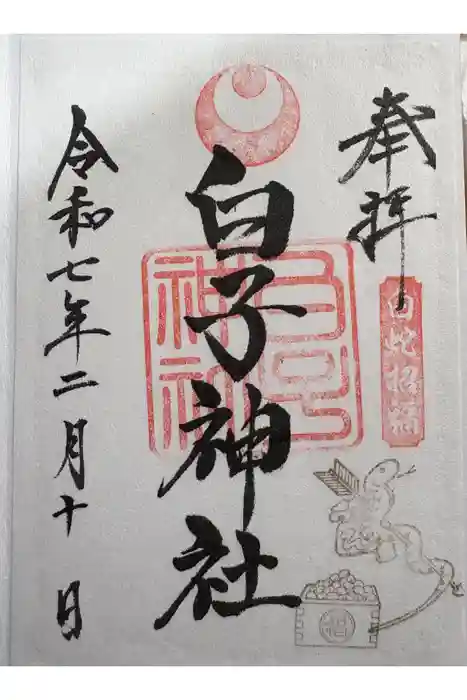 奉拝
白蛇招福
白子神社
令和七年二月十日
福